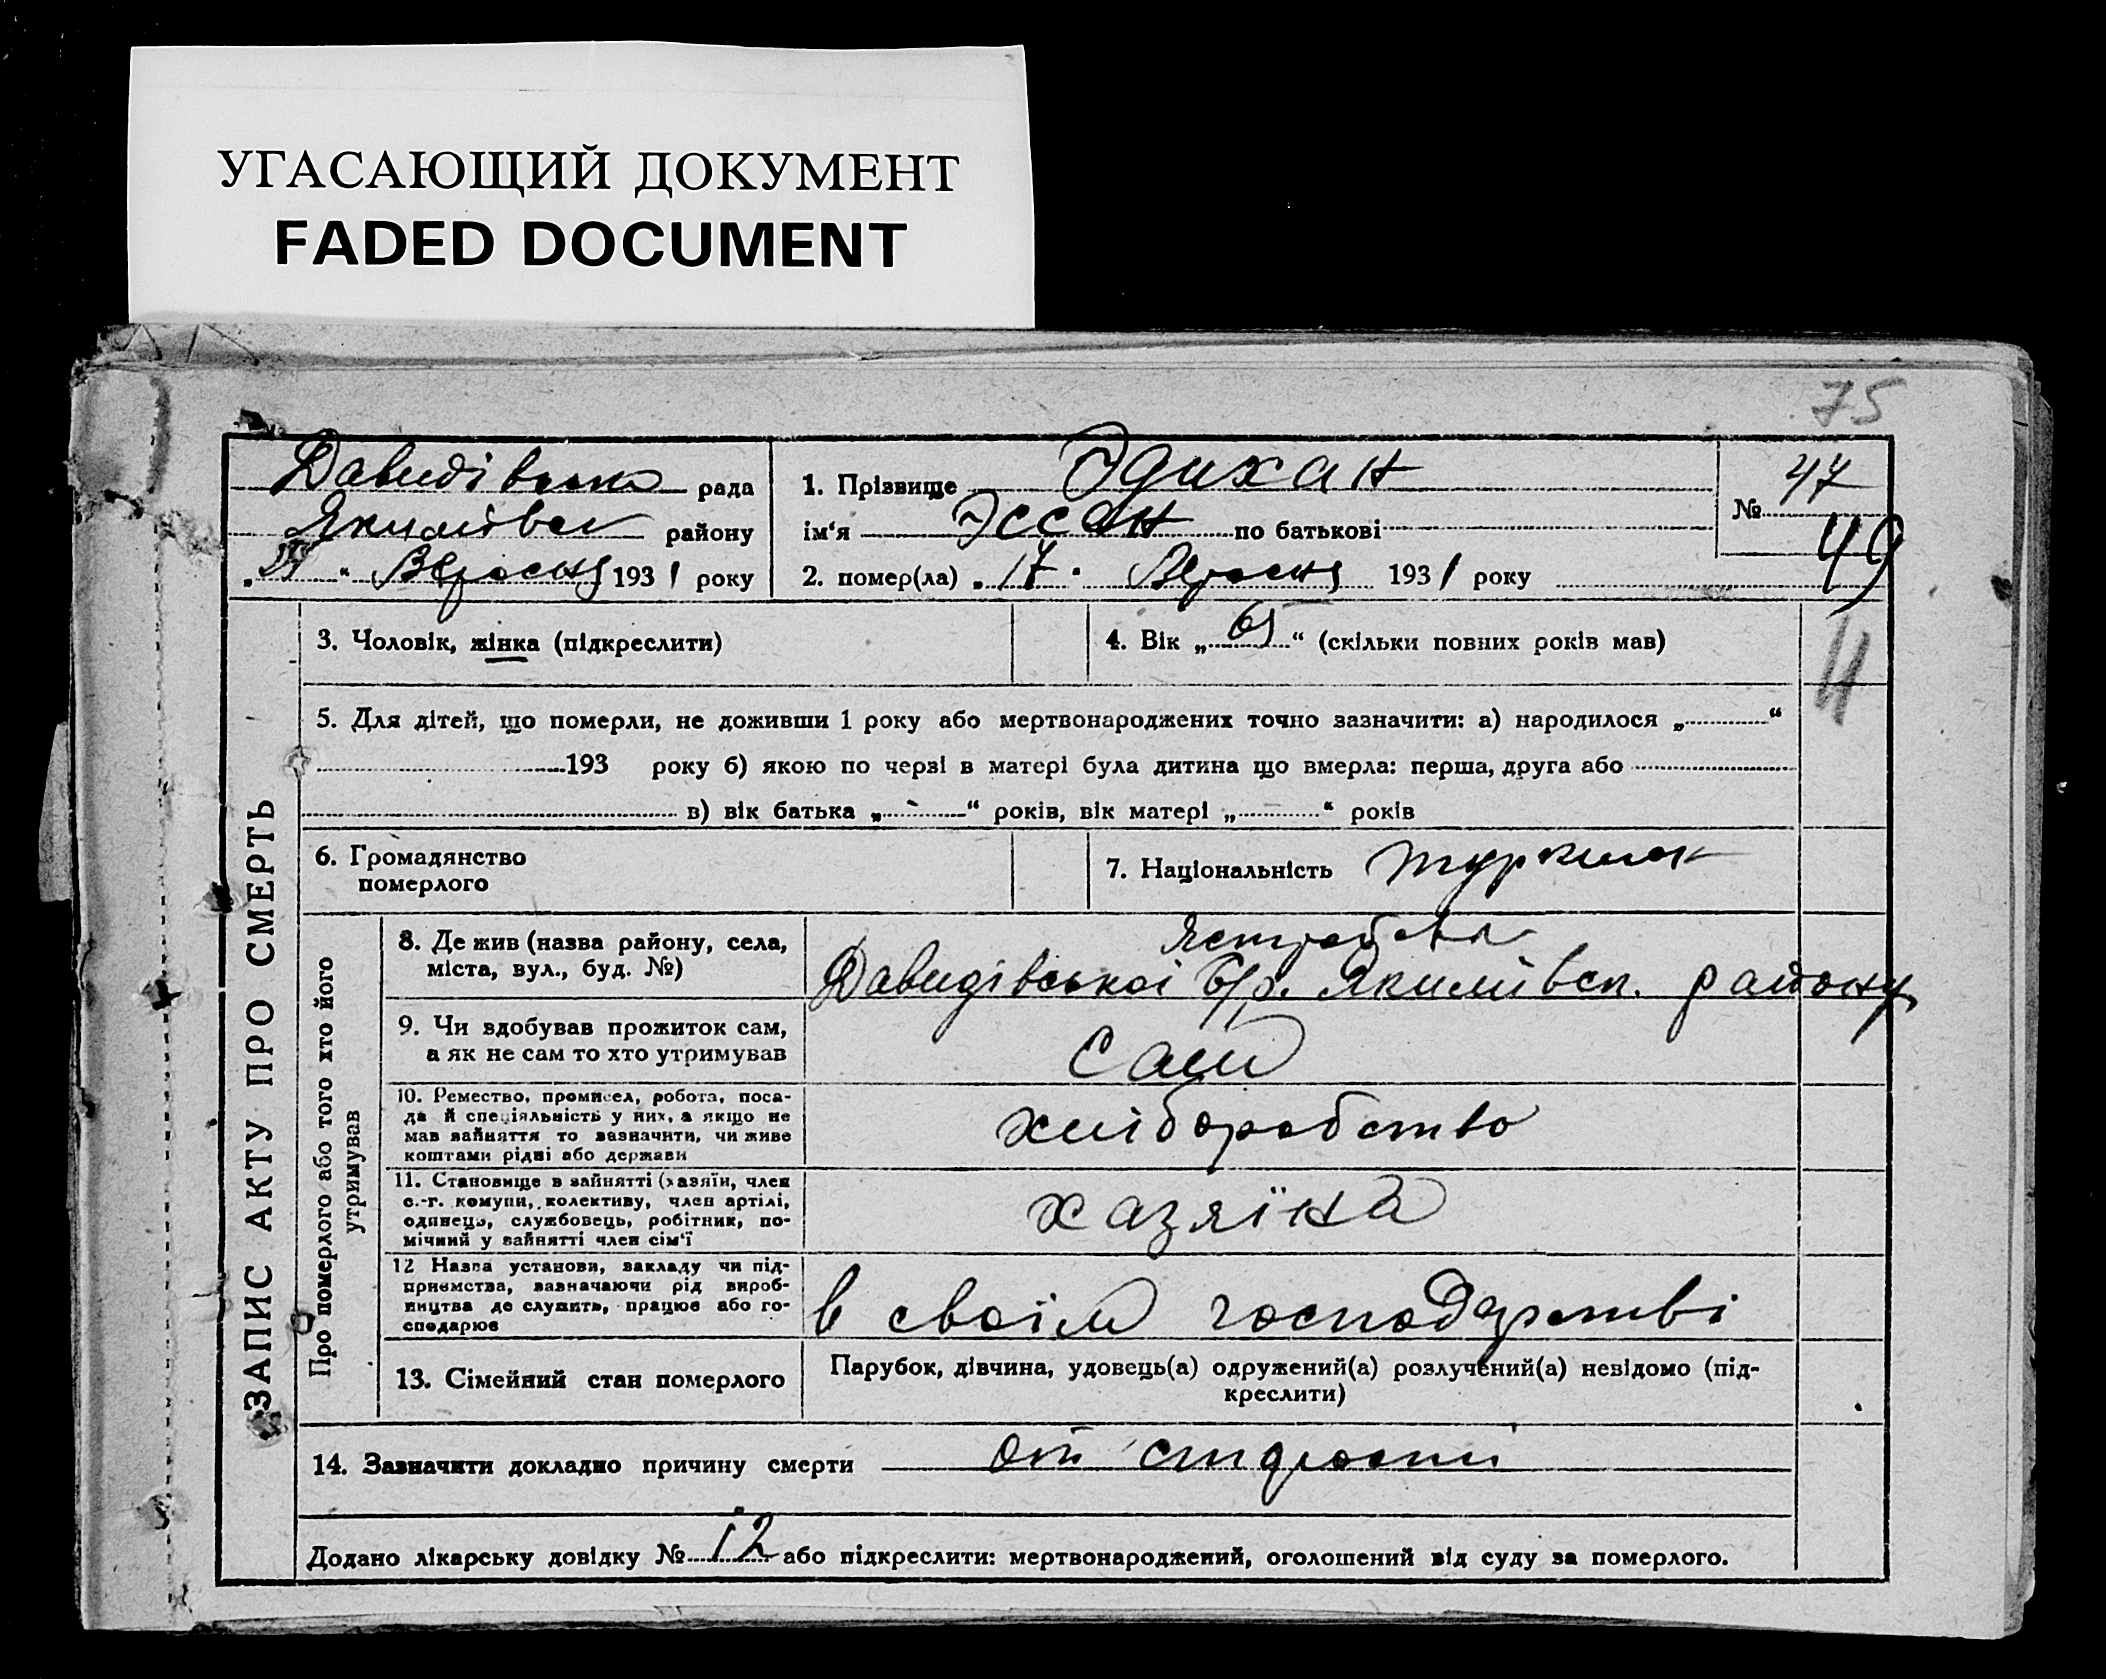 УГАСАЮЩИЙ ДОКУМЕНТ
FADED DOCUMENT
75
Давидівська рада
Якимівськ району
" " Вересня 1931 року
1. Прізвище Эдихан
ім'я Эссан по батькові
2. помер(ла) „17" Вересня 1931 року
№ 47
49
3. Чоловік, жінка (підкреслити)
4. Вік „65“ (скільки повних років мав)
5. Для дітей, що померли, не доживши 1 року або мертвонароджених точно зазначити: а) народилося „ “
193 року б) якою по черзі в матері була дитина що вмерла: перша, друга або
в) вік батька „ “ років, вік матері „ “ років
6. Громадянство
померлого
7. Національність
ЗАПИС АКТУ ПРО СМЕРТЬ
Про померлого або того хто його
утримував
8. Де жив (назва району, села,
міста, вул., буд. №)
Давидівської с/р. Якимівськ. району
9. Чи здобував прожиток сам,
а як не сам то хто утримував
сам
10. Ремество, промисел, робота, поса-
да й спеціяльність у них, а якщо не
мав зайняття то зазначити, чи живе
коштами рідні або держави
хліборобство
11. Становище в зайнятті (хазяїн, член
с.-г. комуни, колективу, член артілі,
одинець, службовець, робітник, по-
мічний у зайнятті член сім'ї
хазяїна
12 Назва установи, закладу чи під-
приємства, зазначаючи рід вироб-
ництва де служить, працює або го-
сподарює
в своїм господарстві
13. Сімейний стан померлого
Парубок, дівчина, удовець(а) одружений(а) розлучений(а) невідомо (під-
креслити)
14. Зазначити докладно причину смерти от старости
Додано лікарську довідку № 12 або підкреслити: мертвонароджений, оголошений від суду за померлого.